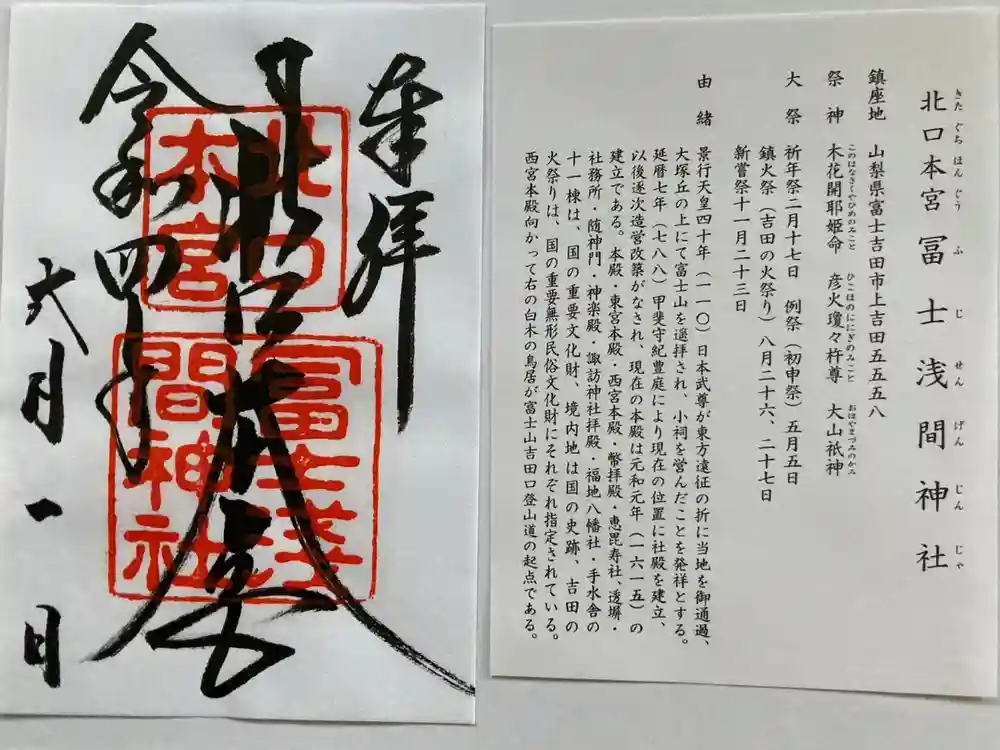 きたぐちほんぐうふじせんげんじんじゃ
北口本宮冨士浅間神社
鎮座地 山梨県富士吉田市上吉田五五五八
このはなさくやひめのみこと ひこほのににぎのみこと おほやまづみのかみ
祭神 木花開耶姫命 彦火瓊々杵尊 大山祇神
大祭 祈年祭二月十七日 例祭(初申祭)五月五日
鎮火祭(吉田の火祭り)八月二十六、二十七日
新嘗祭十一月二十三日
由緒 景行天皇四十年(一一〇)日本武尊が東方遠征の折に当地を御通過、
大塚丘の上にて富士山を遥拝され、小祠を営んだことを発祥とする。
延暦七年(七八八)甲斐守紀豊庭により現在の位置に社殿を建立、
以後逐次造営改築がなされ、現在の本殿は元和元年(一六一五)の
建立である。本殿・東宮本殿・西宮本殿・幣拝殿・恵毘寿社、透塀・
社務所・随神門・神楽殿・諏訪神社拝殿・福地八幡社・手水舎の
十一棟は、国の重要文化財、境内地は国の史跡、吉田の
火祭りは、国の重要無形民俗文化財にそれぞれ指定されている。
西宮本殿向かって右の白木の鳥居が富士山吉田口登山道の起点である。
奉拝
北口
本宮
冨士浅
間神社
令和四年
六月一日